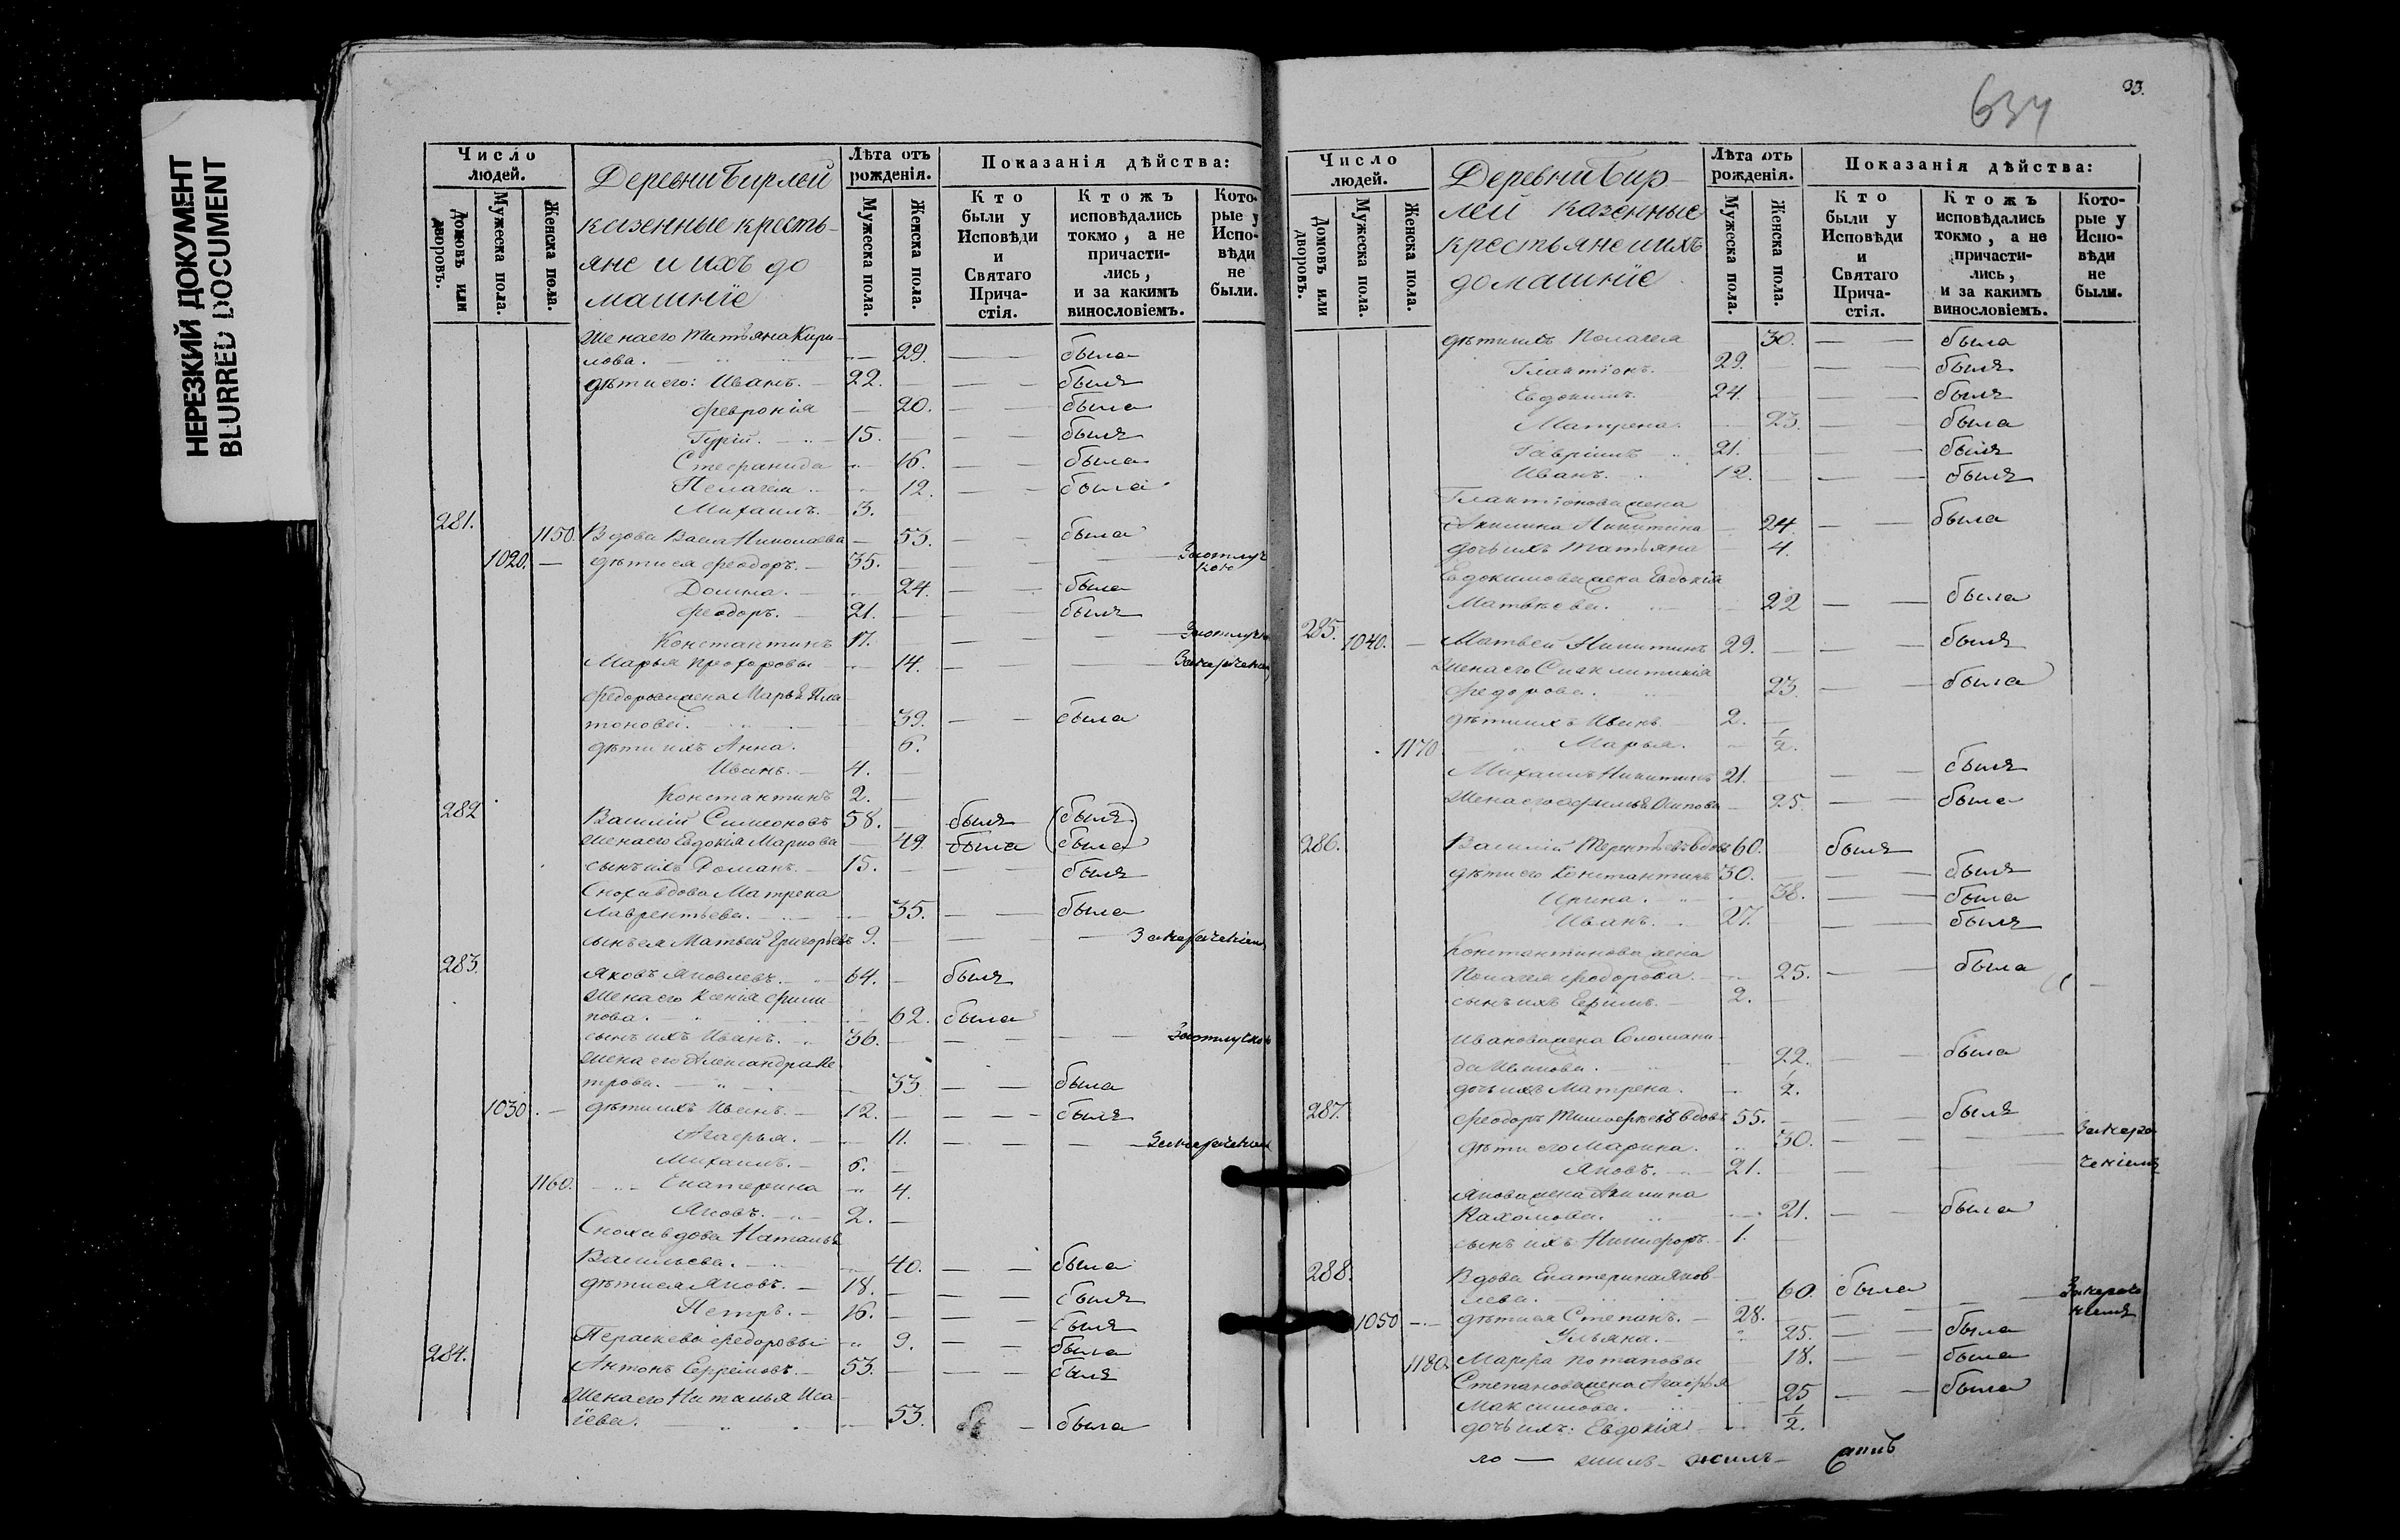 НЕРЕЗКИЙ ДОКУМЕНТ
BLURRED DOCUMENT
Число людей.
Домовъ или дворовъ.
Мужеска пола.
Женска пола.
Деревни Бирлей
казенные кресть-
яне и ихъ до
машніе
Лѣта отъ рожденія.
Мужеска пола.
Женска пола.
Показанія дѣйства:
Кто были у Исповѣди и Святаго Прича-стія.
Ктожъ исповѣдались токмо, а не причасти-лись, и за какимъ винословіемъ.
Кото-рые у Испо-вѣди не были.
Жена его Татьяна Кири-
лова. 29. была
дѣти его: Иванъ. 22. былъ
Февронія 20. была
Гурій. 15. былъ
Стефанида 16. была
Пелагея 12. была
Михаилъ. 3.
281. 1150. Вдова Васса Николаева 53. была
1020. дѣти ея Феодоръ. 35. За отлуч
кою
Домна. 24. была
Феодоръ. 21. былъ
Константинъ 17. За отлучк
Марья Прохоровы 14. За нерачені
Федорова жена Марья Пла-
тонова. 39. была
дѣти ихъ Анна. 6.
Иванъ. 4.
Константинъ 2.
282 Василій Симеоновъ 58. былъ (былъ)
Жена его Евдокія Маркова 49. была (была)
сынъ ихъ Романъ. 15. былъ
Сноха вдова Матрена
Лаврентьева. 35. была
сынъ ея Матвей Григорьевъ 9. За нераченіем
283. Яковъ Яковлевъ. 64. былъ
Жена его Ксенія Фили-
пова. 62. была
сынъ ихъ Иванъ. 36. За отлучкою
Жена его Александра Пе
трова. 33 была
1030. дѣти ихъ Иванъ. 12. былъ
Агафья. 11. За нераченіем
Михаилъ. 6.
1160. Екатерина 4.
Яковъ. 2.
Сноха вдова Наталья
Васильева. 40. была
дѣти ея Яковъ. 18. былъ
Петръ. 16. былъ
Параскева Федоровы 9. была
284. Антонъ Ефремовъ. 53. былъ
Жена его Наталья Иса
іева. 53. была
634
33.
Число людей.
Домовъ или дворовъ.
Мужеска пола.
Женска пола.
Деревни Бир-
лей казенные
крестьяне и ихъ
домашніе
Лѣта отъ рожденія.
Мужеска пола.
Женска пола.
Показанія дѣйства:
Кто были у Исповѣди и Святаго Прича-стія.
Ктожъ исповѣдались токмо, а не причасти-лись, и за какимъ винословіемъ.
Кото-рые у Испо-вѣди не были.
дѣти ихъ Пелагея 30. была
Галактіонъ. 29. былъ
Евдокимъ. 24. былъ
Матрена. 23. была
Гавріилъ 21. былъ
Иванъ. 12. былъ
Галактіонова жена
Акилина Никитина 24. была
дочь ихъ Татьяна 4.
Евдокимова жена Евдокія
Матвѣева. 22 была
285. 1040. Матвей Никитинъ 29. былъ
Жена его Синклитикія
Федорова. 23. была
дѣти ихъ Иванъ. 2.
1170 Марья. 1/2.
Михаилъ Никитинъ 21. былъ
Жена его Осипова 25. была
286. Василій Терентьевъ вдовъ 60. былъ
дѣти его Константинъ 30. былъ
Ирина. 38. была
Иванъ. 27. былъ
Константинова жена
Пелагея Феодорова. 25. была
сынъ ихъ Ефимъ. 2.
Иванова жена Соломани-
да Иванова. 22. была
дочь ихъ Матрена. 1/2.
287. Феодоръ Тимофеевъ вдовъ 55. былъ
дѣти его Марина. 30. За нера
Яковъ. 21. ченіемъ
Якова жена Акилина
Пахомова. 21. была
сынъ ихъ Никифоръ. 1.
288. Вдова Екатерина Яков-
лева. 60. была
1050 дѣти ея Степанъ. 28. За нераче
ніемъ
Ульяна. 25. была
1180. Марфа Потаповы 18. была
Степанова жена Агафья
Максимова. 25 была
дочь ихъ: Евдокія 1/2.